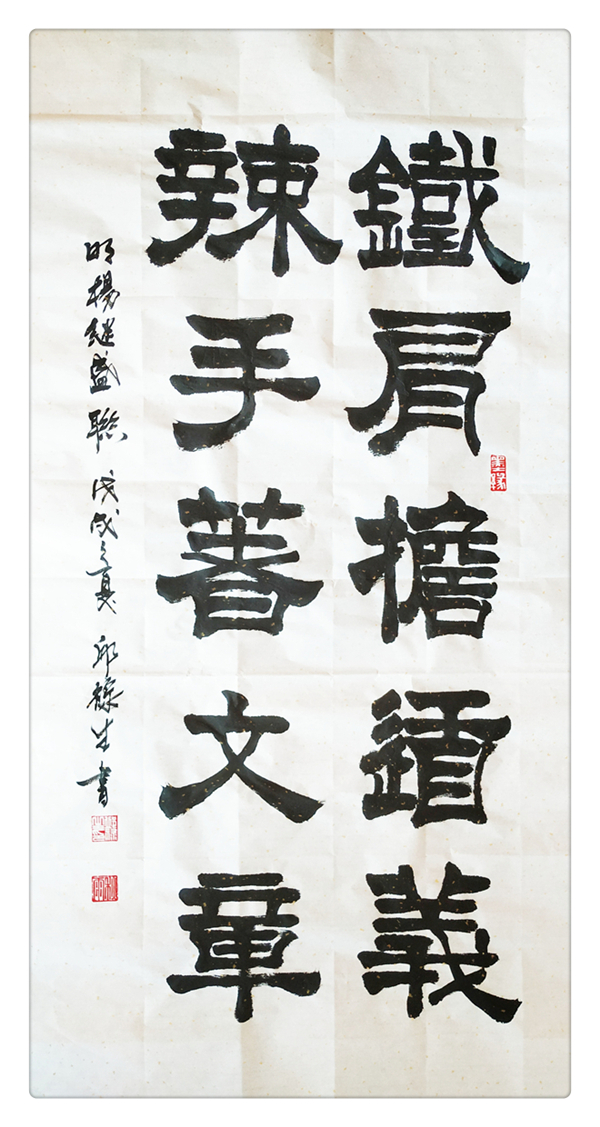 鐵肩擔道義
辣手著文章
明楊继盛聯 戊戌之夏 邱禄生書